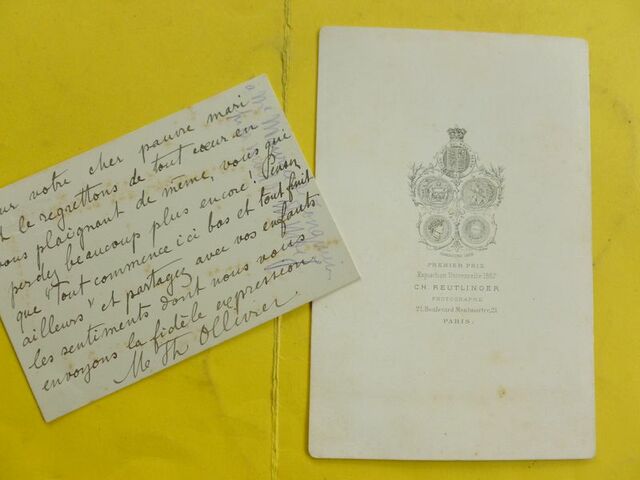 ur votre cher pauvre mari
le regrettons de tout cœur en
vous plaignant de même, vous qui
perdez beaucoup plus encore! Pensez
que "Tout commence ici bas et tout finit
ailleurs" et partagez avec vos enfants
les sentiments dont nous vous
envoyons la fidèle expression
M Th Ollivier.
PREMIER PRIX
Exposition Universelle 1867
CH. REUTLINGER
PHOTOGRAPHE
21, Boulevard Montmartre, 21
PARIS.